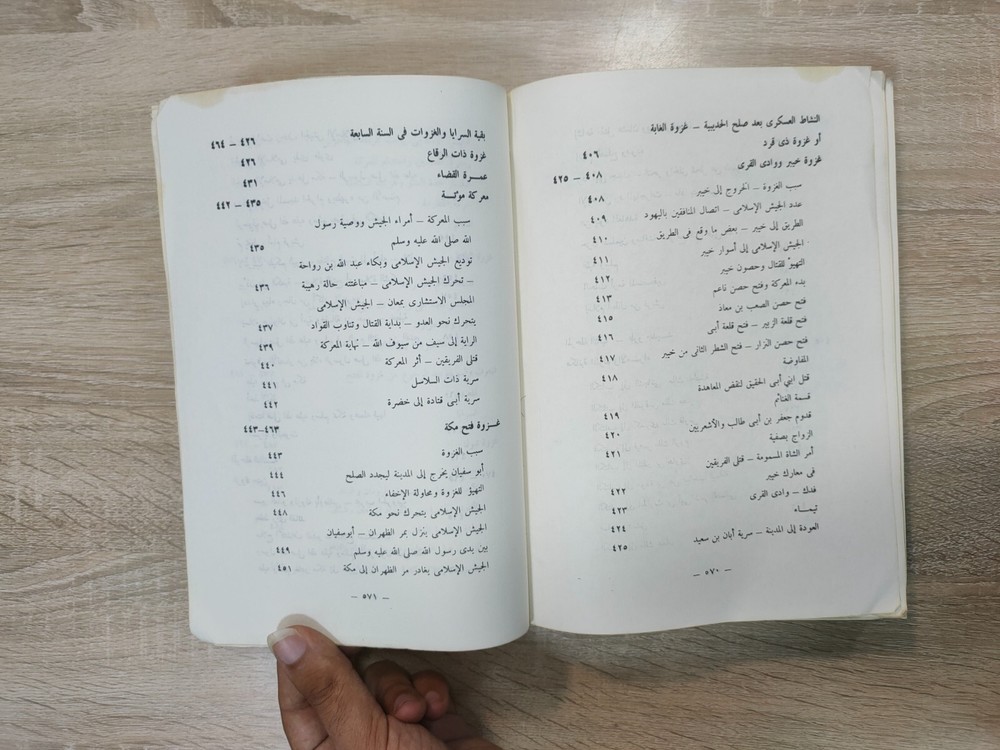 النشاط العسكرى بعد صلح الحديبية – غزوة الغابة
أو غزوة ذى قرد ٤٠٦
غزوة خيبر ووادى القرى ٤٠٨ – ٤٢٥
سبب الغزوة – الخروج إلى خيبر ٤٠٨
عدد الجيش الإسلامى – اتصال المنافقين باليهود ٤٠٩
الطريق إلى خيبر – بعض ما وقع فى الطريق ٤١٠
الجيش الإسلامى إلى أسوار خيبر ٤١١
التهيؤ للقتال وحصون خيبر ٤١٢
بدء المعركة وفتح حصن ناعم ٤١٣
فتح حصن الصعب بن معاذ ٤١٥
فتح قلعة الزبير – فتح قلعة أبى ٤١٦
فتح حصن النزار – فتح الشطر الثانى من خيبر ٤١٧
المفاوضة ٤١٨
قتل ابنى أبى الحقيق لنقض المعاهدة
قسمة الغنائم ٤١٩
قدوم جعفر بن أبى طالب والأشعريين ٤٢٠
الزواج بصفية ٤٢١
أمر الشاة المسمومة – قتلى الفريقين
فى معارك خيبر ٤٢٢
فدك – وادى القرى ٤٢٣
تيمـــاء ٤٢٤
العودة إلى المدينة – سرية أبان بن سعيد ٤٢٥
– ٥٧٠ –
بقية السرايا والغزوات فى السنة السابعة ٤٢٦ – ٤٦٤
غزوة ذات الرقاع ٤٢٦
عمـرة القضاء ٤٣١
معركة مؤتـة ٤٣٥ – ٤٤٢
سبب المعركة – أمراء الجيش ووصية رسول
الله صلى الله عليه وسلم ٤٣٥
توديع الجيش الإسلامى وبكاء عبد الله بن رواحة
– تحرك الجيش الإسلامى – مباغتته حالة رهيبة ٤٣٦
المجلس الاستشارى بمعان – الجيش الإسلامى
يتحرك نحو العدو – بداية القتال وتناوب القواد ٤٣٧
الراية إلى سيف من سيوف الله – نهاية المعركة ٤٣٩
قتلى الفريقين – أثر المعركة ٤٤٠
سرية ذات السلاسل ٤٤١
سرية أبى قتادة إلى خضرة ٤٤٢
غـزوة فتح مكة ٤٤٣–٤٦٣
سبب الغزوة ٤٤٣
أبو سفيان يخرج إلى المدينة ليجدد الصلح ٤٤٤
التهيؤ للغزوة ومحاولة الإخفاء ٤٤٦
الجيش الإسلامى يتحرك نحو مكة ٤٤٨
الجيش الإسلامى ينزل بمر الظهران – أبوسفيان
بين يدى رسول الله صلى الله عليه وسلم ٤٤٩
الجيش الإسلامى يغادر مر الظهران إلى مكة ٤٥١
– ٥٧١ –